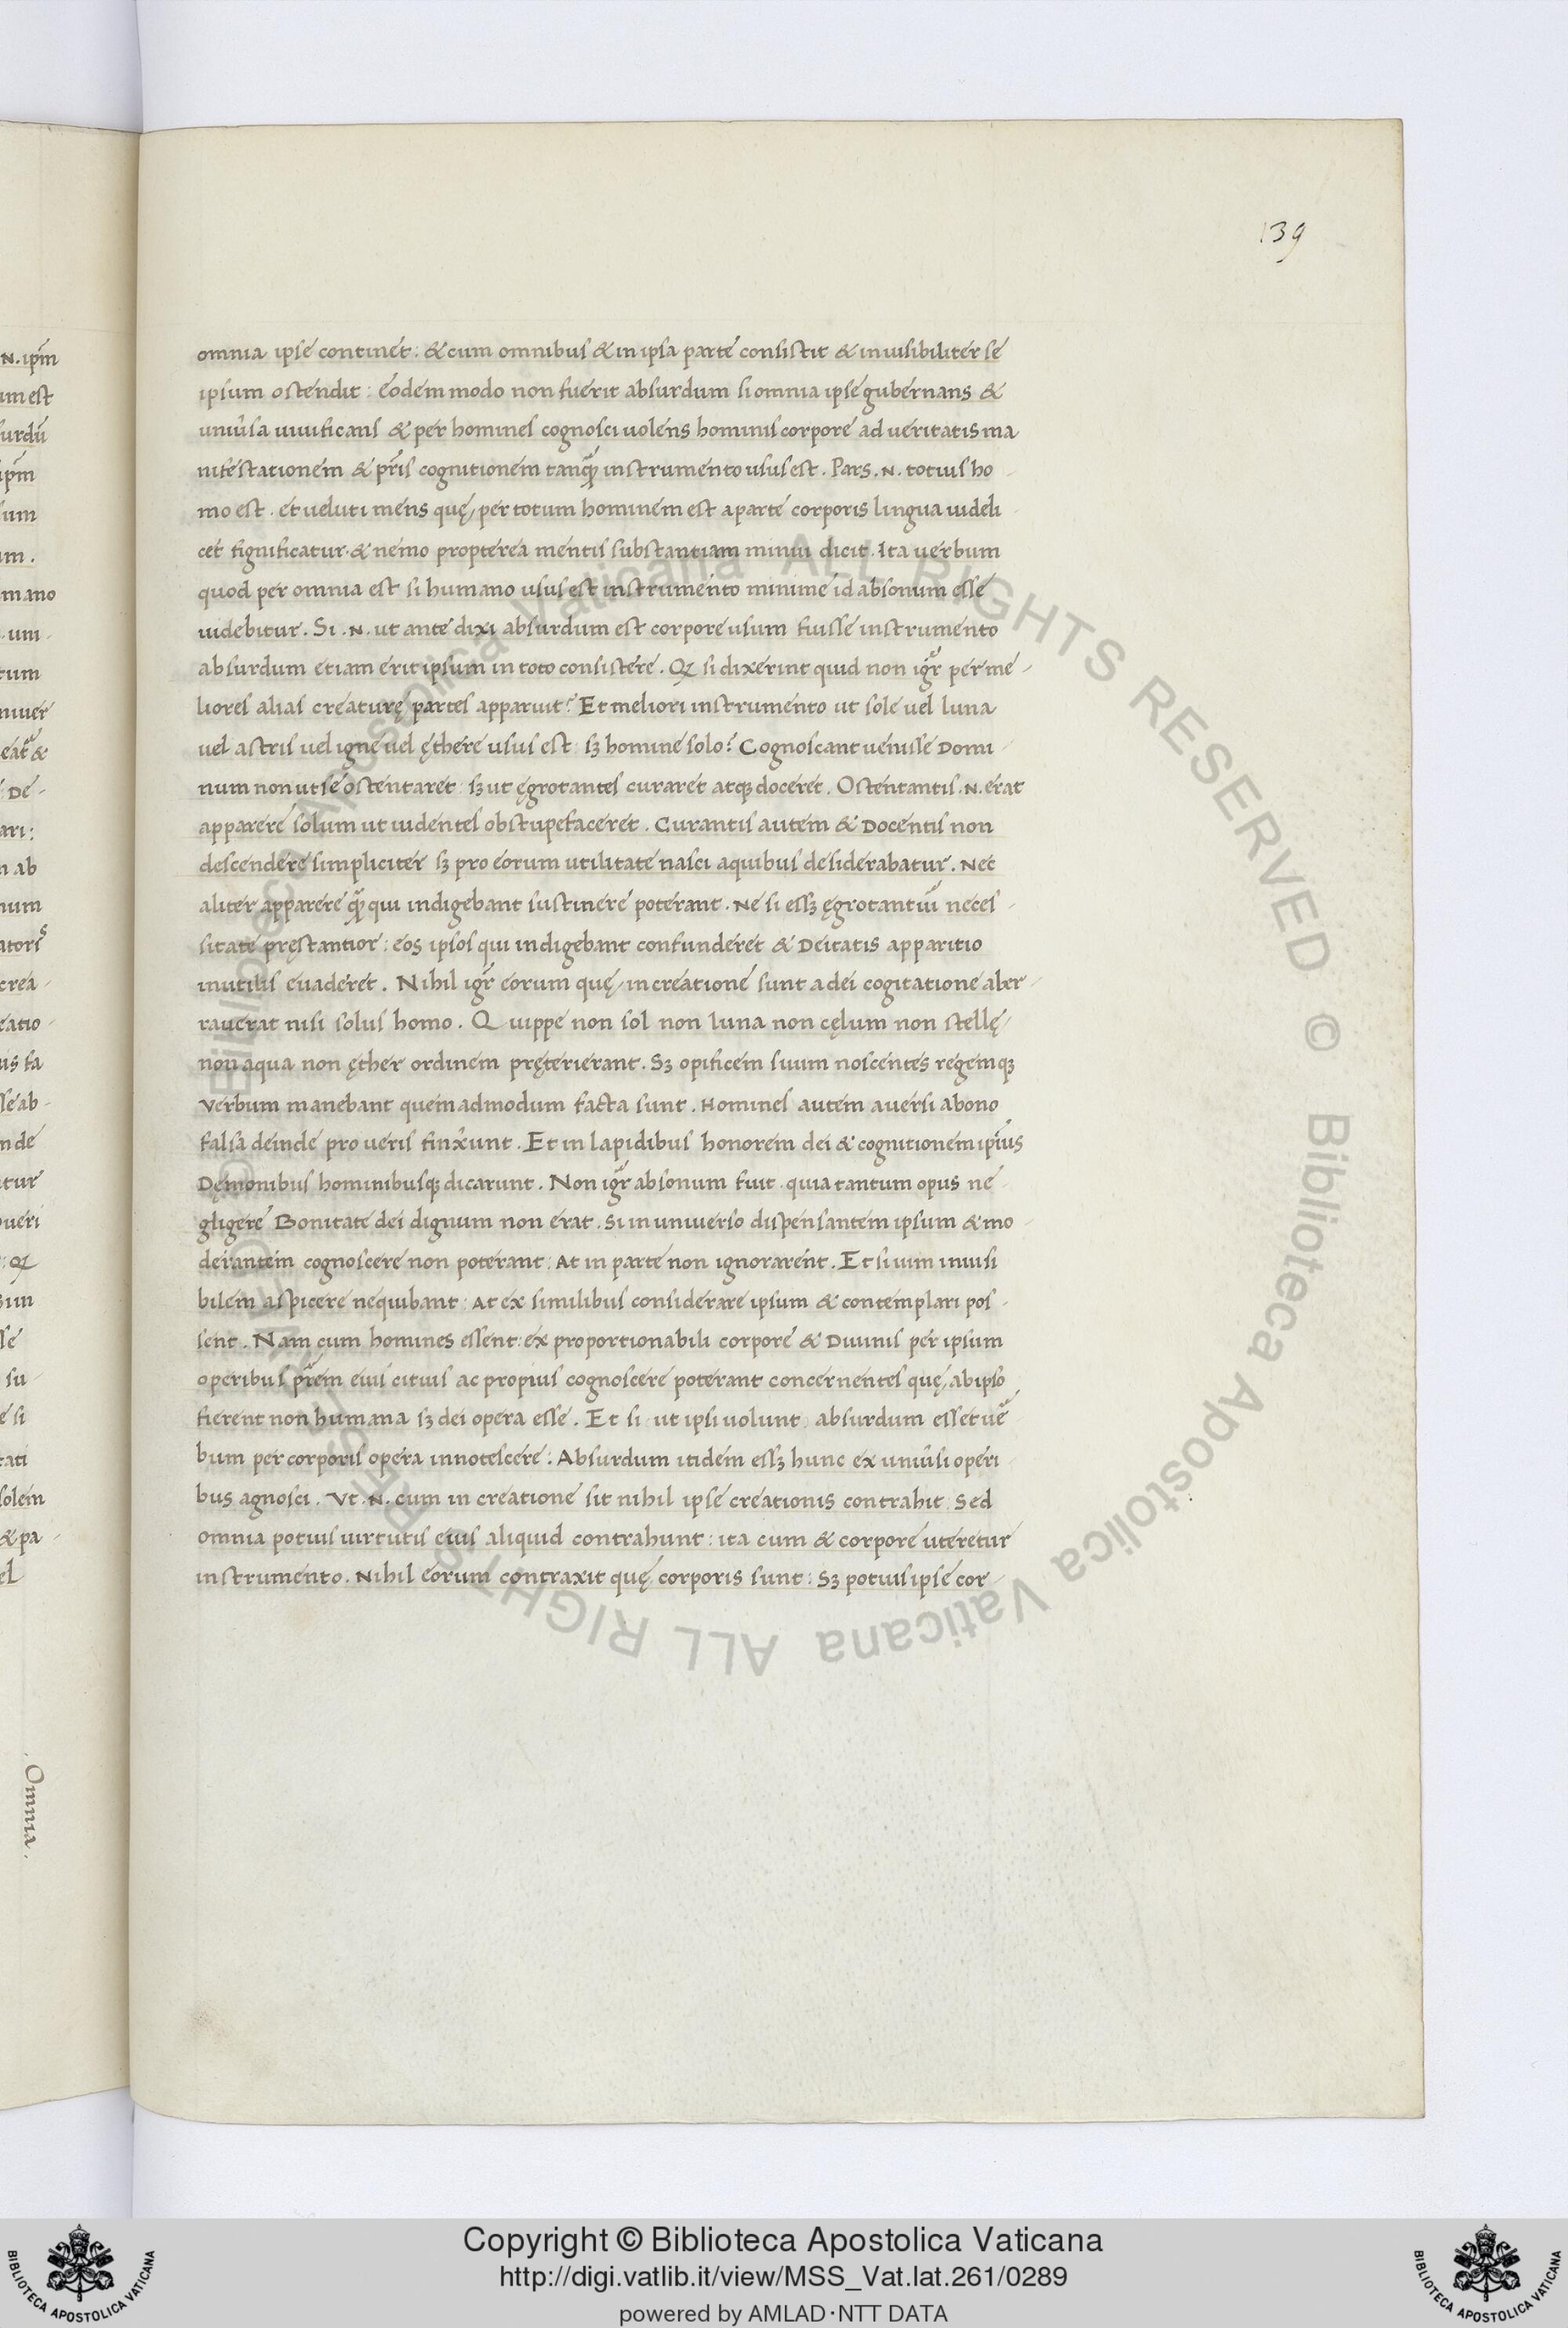 139
omnia ipse continet: & cum omnibus & in ipsa parte consistit & inuisibiliter se
ipsum ostendit: eodem modo non fuerit absurdum si omnia ipse gubernans &
uniũsa uiuificans & per homines cognosci uolens hominis corpore ad ueritatis ma
nifestationem & pr̃is cognitionem tanq̃ instrumento usus est. Pars .N. totius ho-
mo est. et ueluti mens quę per totum hominem est a parte corporis lingua uideli
cet significatur. & nemo propterea mentis substantiam minui dicit. Ita uerbum
quod per omnia est si humano usus est instrumento minime id absonum esse
uidebitur. Si .N. ut ante dixi absurdum est corpore usum fuisse instrumento
absurdum etiam erit ipsum in toto consistere. Qꝫ si dixerint quid non igr̃ per me-
liores alias creaturę partes apparuit? Et meliori instrumento ut sole uel luna
uel astris uel igne uel ęthere usus est: sꝫ homine solo? Cognoscant uenisse Domi-
num non ut se ostentaret: sꝫ ut ęgrotantes curaret atqꝫ doceret. Ostentantis .N. erat
apparere solum ut uidentes obstupefaceret. Curantis autem & Docentis non
descendere simpliciter sꝫ pro eorum utilitate nasci a quibus desiderabatur. Nec
aliter apparere q̃ qui indigebant sustinere poterant. Ne si essꝫ ęgrotantiũ neces-
sitate pręstantior: eos ipsos qui indigebant confunderet & Deitatis apparitio
inutilis euaderet. Nihil igr̃ eorum quę in creatione sunt a dei cogitatione aber-
rauerat nisi solus homo. Quippe non sol non luna non cęlum non stellę
non aqua non ęther ordinem pręterierant. Sꝫ opificem suum noscentes regemqꝫ
Verbum manebant quemadmodum facta sunt. Homines autem auersi a bono
falsa deinde pro ueris finxerunt. Et in lapidibus honorem dei & cognitionem ipĩus
Dęmonibus hominibusqꝫ dicarunt. Non igr̃ absonum fuit. quia tantum opus ne
gligere Bonitate dei dignum non erat. Si in uniuerso dispensantem ipsum & mo-
derantem cognoscere non poterant: At in parte non ignorarent. Et si uim inuisi
bilem aspicere nequibant: At ex similibus considerare ipsum & contemplari pos-
sent. Nam cum homines essent: ex proportionabili corpore & Diuinis per ipsum
operibus pr̃em eius citius ac propius cognoscere poterant concernentes quę ab ipso
fierent non humana sꝫ dei opera esse. Et si ut ipsi uolunt absurdum esset uẽ
bum per corporis opera innotescere: Absurdum itidem essꝫ hunc ex uniũsi operi-
bus agnosci. Vt .N. cum in creatione sit nihil ipse creationis contrahit: Sed
omnia potius uirtutis eius aliquid contrahunt: ita cum & corpore uteretur
instrumento. Nihil eorum contraxit quę corporis sunt: Sꝫ potius ipse cor-
N. ipm̃
um est
surdũ
ipm̃
um
um.
mano
um-
tum
niuer
&
De-
ari:
n ab
num
crea-
eatio-
is fa
se ab-
nde
tur
ueri
Qꝫ
se
su-
e si
tati
solem
& pa-
el
Omnia.
© Biblioteca Apostolica Vaticana ALL RIGHTS RESERVED © Biblioteca Apostolica Vaticana ALL RIGHTS RESERVED
Copyright © Biblioteca Apostolica Vaticana
http://digi.vatlib.it/view/MSS_Vat.lat.261/0289
powered by AMLAD·NTT DATA
BIBLIOTECA APOSTOLICA VATICANA
BIBLIOTECA APOSTOLICA VATICANA